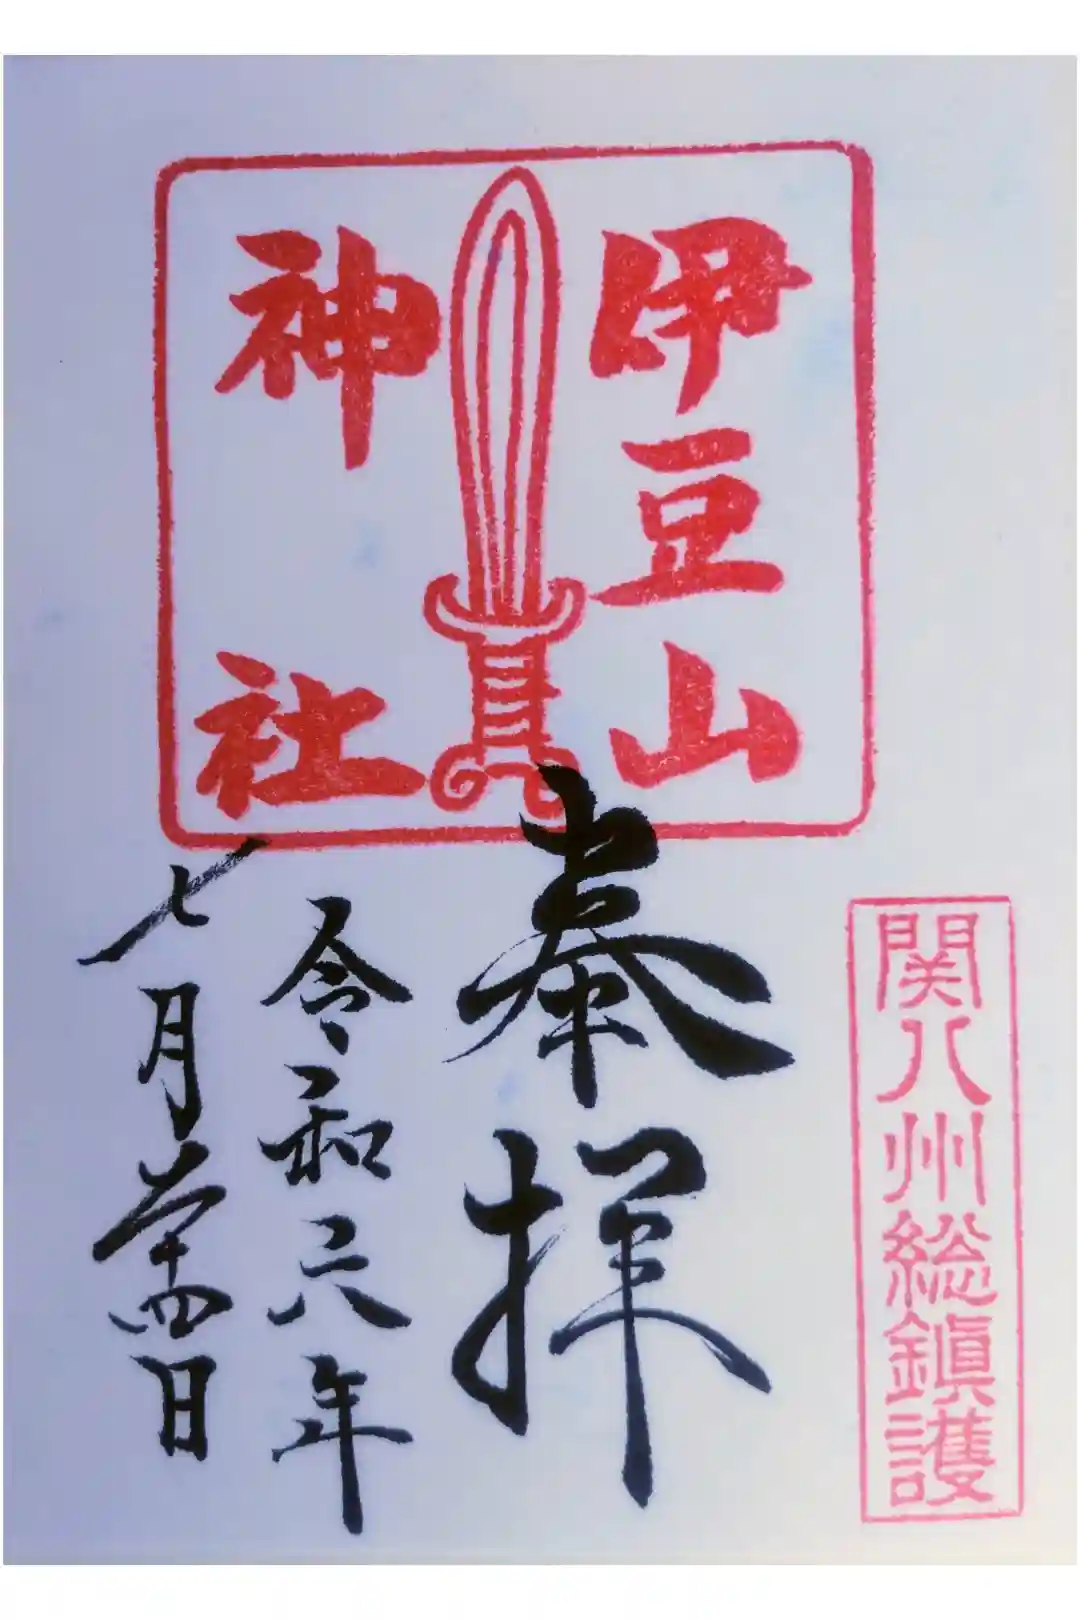 伊豆山
神社
奉拝
令和六年
七月二十四日
関八州総鎮護